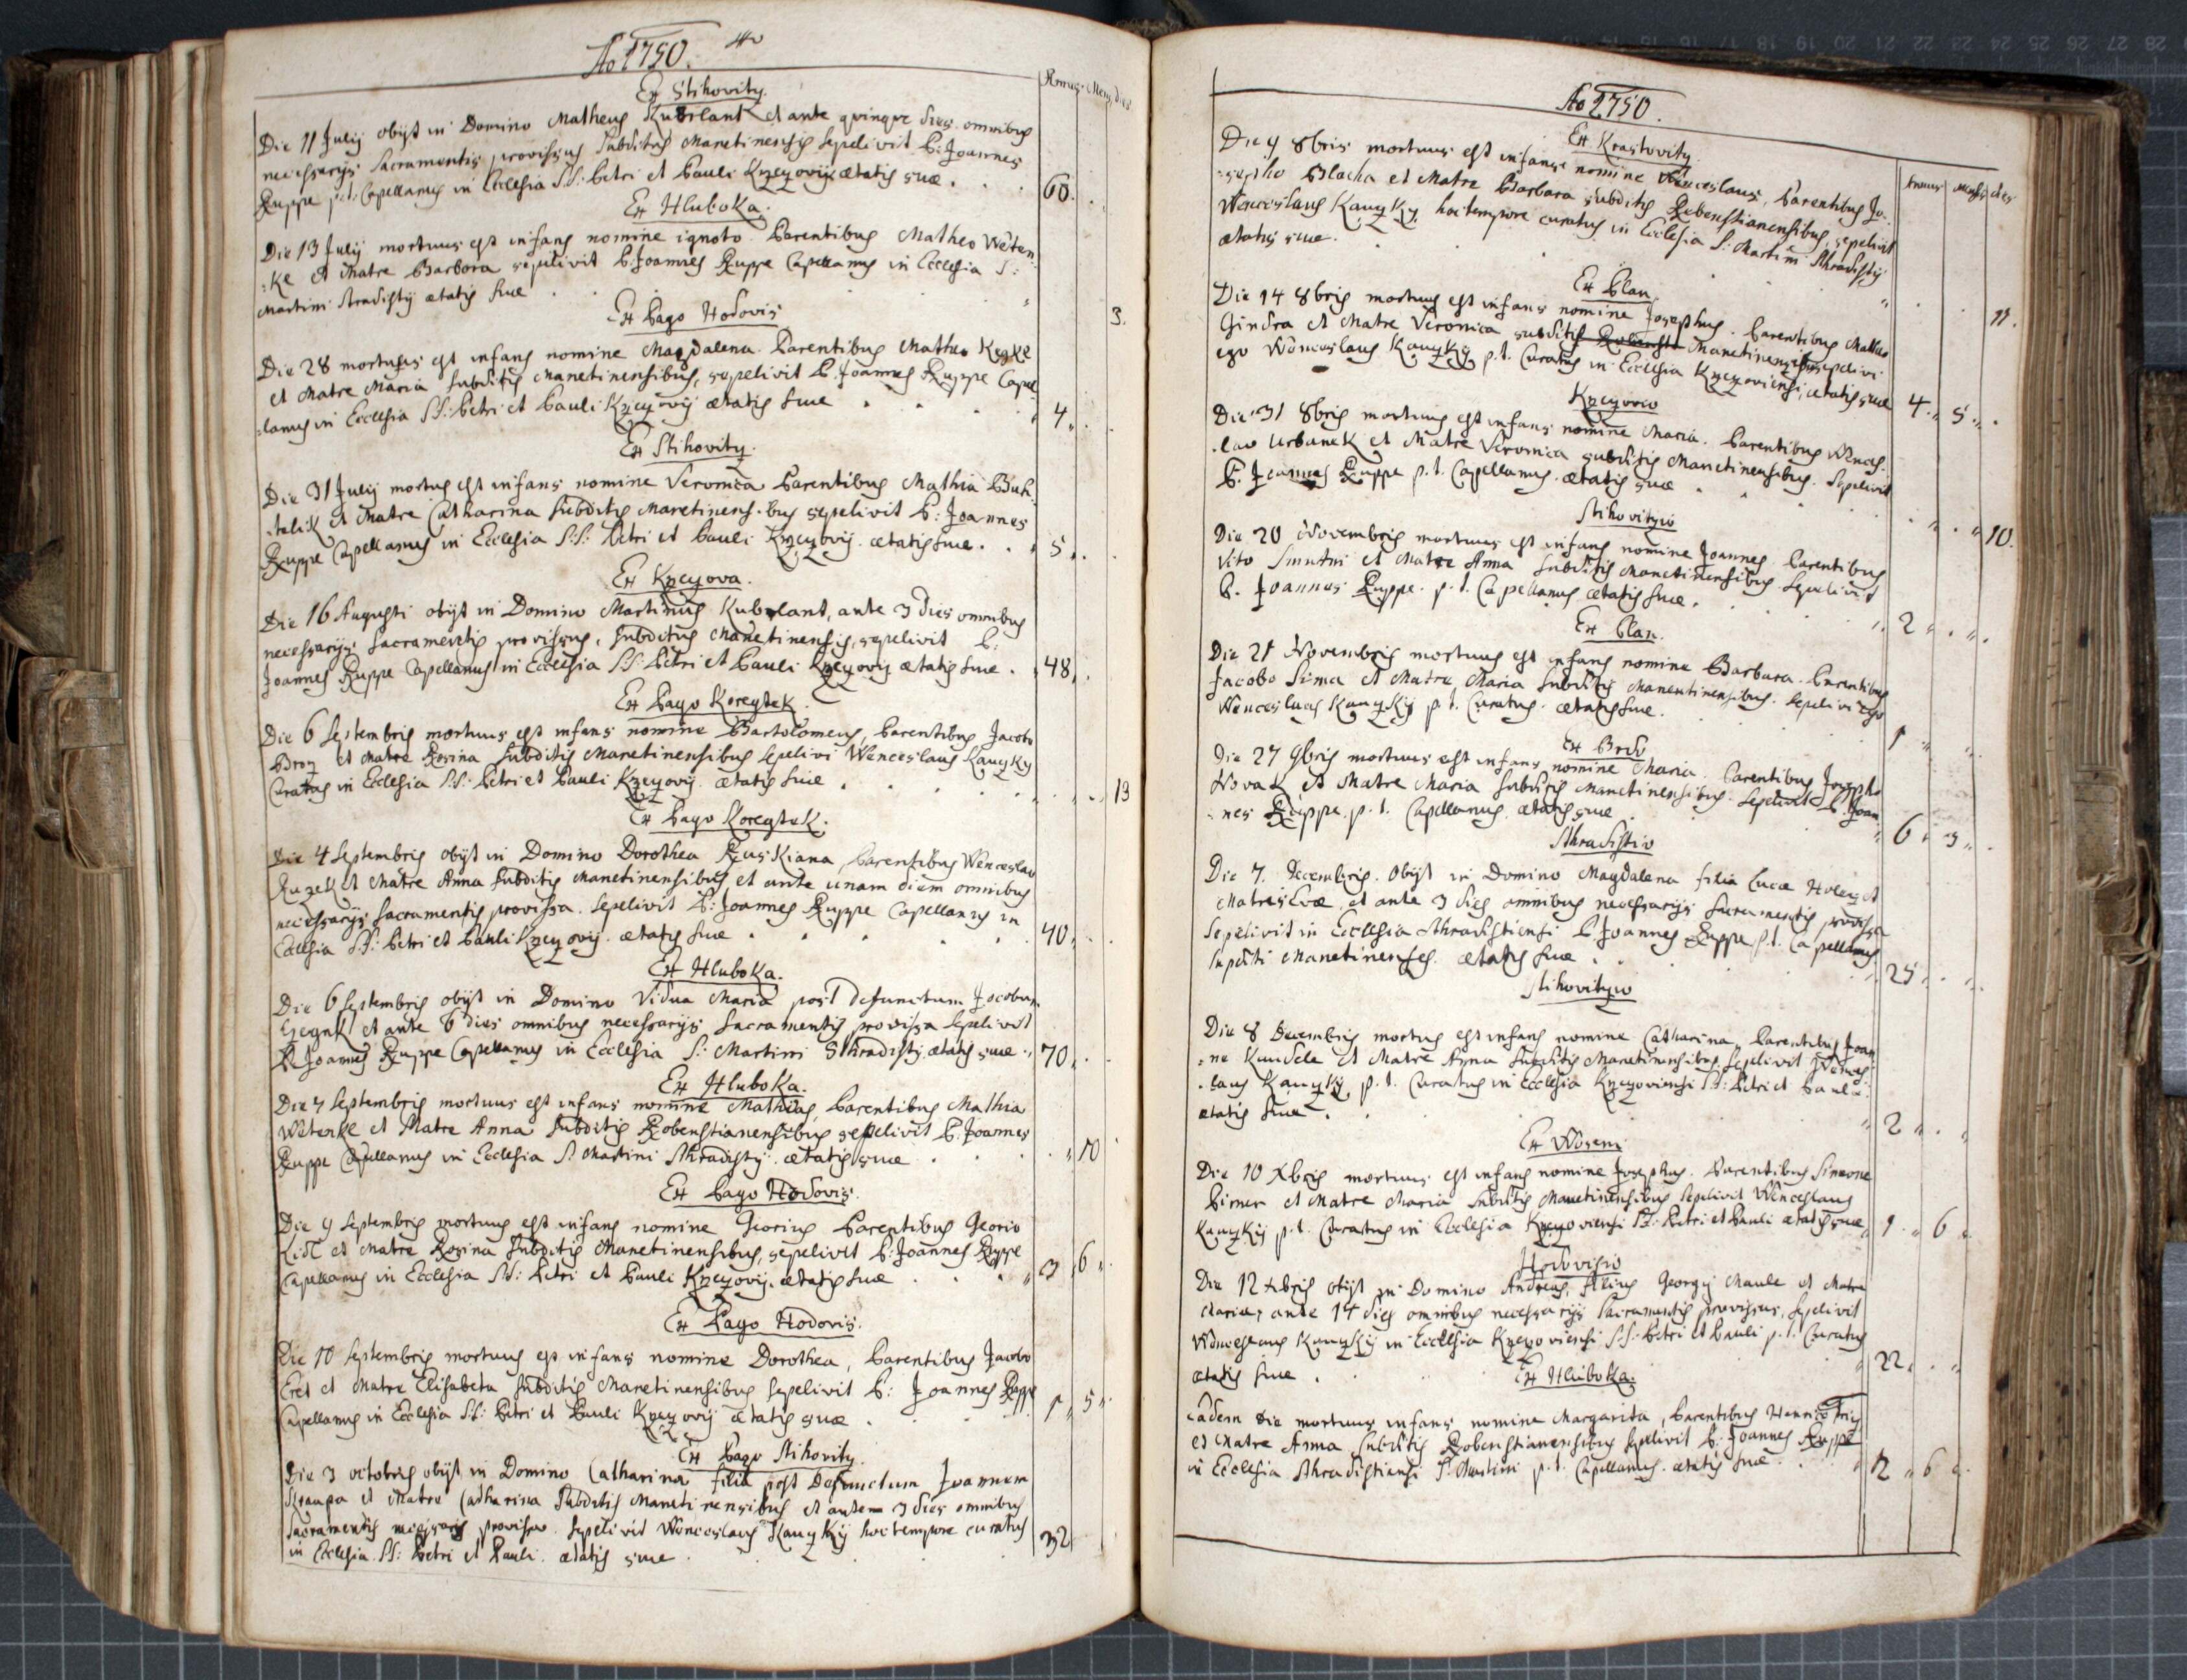 Ao 1750.
Annus Mens. dies
Ex Stihovitz.
Die 11 Julij obijt in Domino Matheus Kubrlant et ante quinque dies omnibus
necessarijs Sacramentis provissus Subditus Manetinensis Sepelivit P: Joannes
Ruppe p: t: Capellanus in Ecclesia S:S: Petri et Pauli Krzczovij ætatis suæ. 60.
Ex Hluboka.
Die 13 Julij mortuus est infans nomine ignoto. Parentibus Matheo Weten-
-ke et Matre Barbora sepelivit P. Joannes Ruppe Capellanus in Ecclesia S:
Martini Hradisstij ætatis suæ 3.
Ex Pago Hodovis
Die 28 mortuus est infans nomine Magdalena. Parentibus Matheo
et Matre Maria Subditis Manetinensibus, sepelivit P. Joannes Ruppe Capel-
-lanus in Ecclesia S:S: Petri et Pauli Krzczovij ætatis suæ 4
Ex Stihovitz.
Die 31 Julij mortus est infans nomine Veronica Parentibus Mathia
-talik et Matre Catharina Subditis Manetinensibus sepelivit P: Joannes
Ruppe Capellanus in Ecclesia S:S: Petri et Pauli Krzczovij. ætatis suæ. 5
Ex Krzczova.
Die 16 Augusti obijt in Domino Martinus Kubrlant, ante 3 dies omnibus
necessarijs Sacramentis provissus, Subditus Manetinensis, sepelivit P:
Joannes Ruppe Capellanus in Ecclesia S:S: Petri et Pauli Krzczovij ætatis suæ. 48
Ex Pago Koreytek.
Die 6 Septembris mortuus est infans nomine Bartolomeus, Parentibus Jacobo
Broz et Matre Rosina Subditis Manetinensibus Sepelivi Wenceslaus Kauzky
Curatus in Ecclesia S:S: Petri et Pauli Krzczovij. ætatis suæ 13
Ex Pago Koreytek.
Die 4 Septembris obijt in Domino Dorothea Ruskiana, Parentibus Wenceslao
Ruzek et Matre Anna Subditis Manetinensibus et ante unam diem omnibus
necessarijs Sacramentis provissa. Sepelivit P: Joannes Ruppe Capellanus in
Ecclesia S:S: Petri et Pauli Krzczovij. ætatis suæ 40
Ex Hluboka.
Die 6 Septembris obijt in Domino Vidua Maria post defunctum Jacobum
et ante 6 dies omnibus necessarijs Sacramentis provissa Sepelivit
P. Joannes Ruppe Capellanus in Ecclesia S: Martini Hradistij ætatis suæ 70
Ex Hluboka.
Die 7 Septembris mortuus est infans nomine Mathias, Parentibus Mathia
Wetenke et Matre Anna Subditis Robenstianensibus sepelivit P. Joannes
Ruppe Capellanus in Ecclesia S. Martini Hradistij. ætatis suæ 10
Ex Pago Hodovis.
Die 9 Septembris mortuus est infans nomine Georius Parentibus Georio
et Matre Rosina Subditis Manetinensibus, sepelivit P: Joannes Ruppe
Capellanus in Ecclesia S:S: Petri et Pauli Krzczovij. ætatis suæ 3 6
Ex Pago Hodovis.
Die 10 Septembris mortuus est infans nomine Dorothea, Parentibus Jacobo
Eret et Matre Elisabeta Subditis Manetinensibus Sepelivit P: Joannes Ruppe
Capellanus in Ecclesia S:S: Petri et Pauli Krzczovij ætatis suæ. 1 5
Ex Pago Stihovitz.
Die 3 octobris obijt in Domino Catharina filia post Defunctum Joannem
et Matre Catharina Subditis Manetinensibus et antem 3 dies omnibus
Sacramentis necessarijs provissa. Sepelivit Wenceslaus Kauzkij hoc tempore curatus
in Ecclesia S:S: Petri et Pauli. ætatis suæ 32
Ao 1750.
Annus Mensis dies
Ex Krastovitz.
Die 9 8bris mortuus est infans nomine Wenceslaus, Parentibus Jo-
-sepho Blacha et Matre Barbara subditis Rebenstianensibus, sepelivit
Wenceslaus Kauzky hoc tempore curatus in Ecclesia S: Martini Hradistij
ætatis suæ. 11.
Ex Plan
Die 14 8bris mortuus est infans nomine Josephus. Parentibus Matheo
Gindra et Matre Veronica subditis Manetinensibus sepelivi
ego Wenceslaus Kauzkij p. t. Curatus in Ecclesia Krzczoviensi, ætatis suæ 4 5
Krzczovio
Die 31 8bris mortuus est infans nomine Maria. Parentibus Wences-
-lao Urbanek et Matre Veronica subditis Manetinensibus. Sepelivit
P. Joannes Ruppe p. t. Capellanus. ætatis suæ 10.
Stihovitzio
Die 20 Novembris mortuus est infans nomine Joannes Parentibus
Vito Smutni et Matre Anna Subditis Manetinensibus. Sepelivit
P. Joannes Ruppe. p. t. Capellanus ætatis suæ. 2
Ex Plan.
Die 21 Novembris mortuus est infans nomine Barbara. Parentibus
Jacobo Sima et Matre Maria Subditis Manentinensibus. Sepelivi Ego
Wenceslaus Kauzkij p. t. Curatus. ætatis suæ. 1
Ex Brdo
Die 27 9bris mortuus est infans nomine Maria. Parentibus Josepho
Novak et Matre Maria Subditis Manetinensibus. Sepelivit P. Joan-
-nes Ruppe. p. t. Capellanus ætatis suæ 6 3
Hradistio
Die 7. Decembris. Obijt in Domino Magdalena filia Lucæ
Matris Evæ, et ante 3 dies omnibus necessarijs Sacramentis provissa
Sepelivit in Ecclesia Hradistiensi P. Joannes Ruppe p. t. Capellanus
Supditi Manetinenses. ætatis suæ 25
Stihovitzio
Die 8 Decembris mortus est infans nomine Catharina, Parentibus Joan-
-ne Kundele et Matre Anna Subditis Manetinensibus Sepelivit Wences-
-laus Kauzkij p. t. Curatus in Ecclesia Krzczoviensi S:S: Petri et Pauli
ætatis suæ. 2
Ex Wosem
Die 10 Xbris mortuus est infans nomine Josephus. Parentibus Simeone
Pirner et Matre Maria Subditis Manetinensibus Sepelivit Wenceslaus
Kauzkij p. t. Curatus in Ecclesia Krzczoviensi S:S: Petri et Pauli ætatis suæ 1 6
Hodovisio
Die 12 Xbris obijt in Domino Andreas, filius Georgij Maule et Matre
Maria, ante 14 dies omnibus necessarijs Sacramentis provissus, Sepelivit
Wenceslaus Kauzkij in Ecclesia Krzczoviensi S:S: Petri et Pauli p. t. Curatus
ætatis suæ. 22
Ex Hluboka.
Eadem die mortuus infans nomine Margarita, Parentibus Henrico
et Matre Anna Subditis Robenstianensibus Sepelivit P. Joannes Ruppe
in Ecclesia Hradistiensi S. Martini p. t. Capellanus. ætatis suæ. 12 6